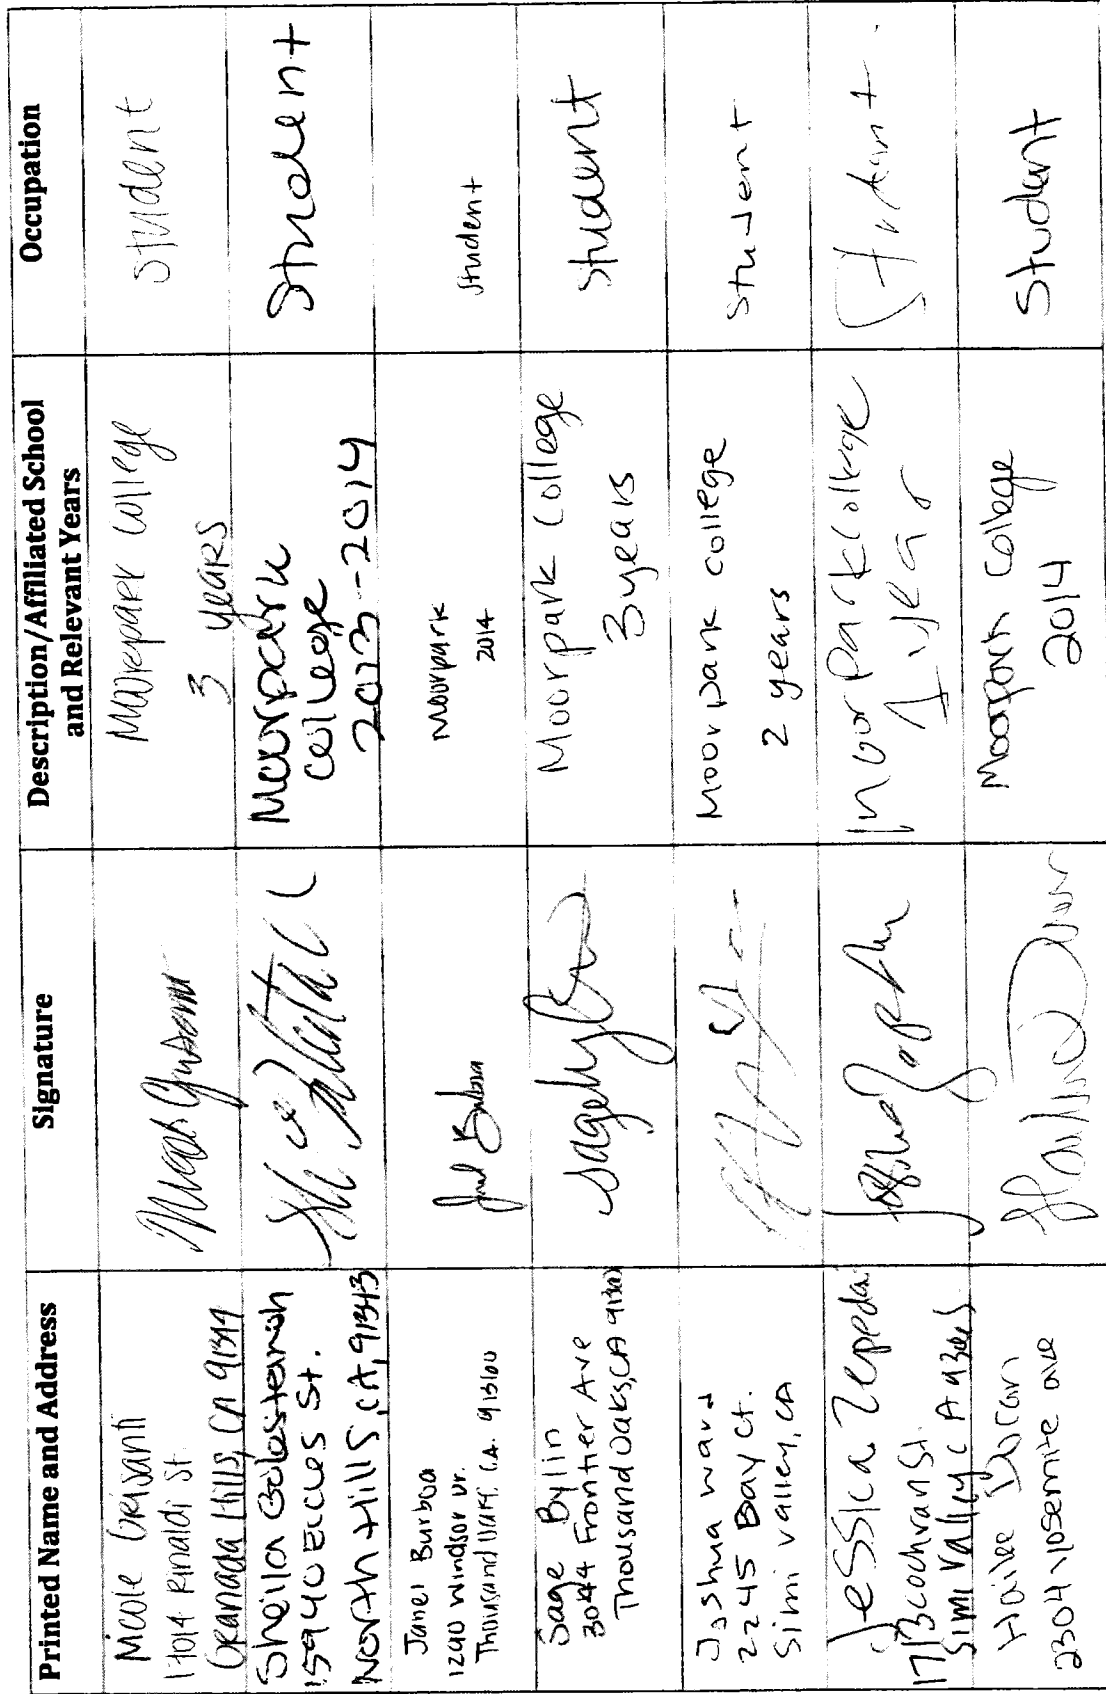 Printed Name and Address
Signature
Description/Affiliated School
and Relevant Years
Occupation
Nicole Grisanti
17014 Rinaldi St
Granada Hills, CA 91344
Moorepark College
3 years
student
Sheila Golestanian
15940 Eccles St.
North Hills, CA, 91343
Moorpark
college
2013--2014
Student
Janel Burboa
1290 Windsor Dr.
Thousand CA.
Moorpark
2014
Student
Sage Bylin
3044 Frontier Ave
Thousand Oaks, CA
Moorpark College
3 years
Student
Joshua Ward
2245 Bay Ct.
Simi Valley, CA
Moorpark college
2 years
Student
Jessica Zepeda
Cochran St.
Simi Valley CA
Moorpark College
1 year
Student
Hailee
2304 Yosemite ave
Moorpark College
2014
Student